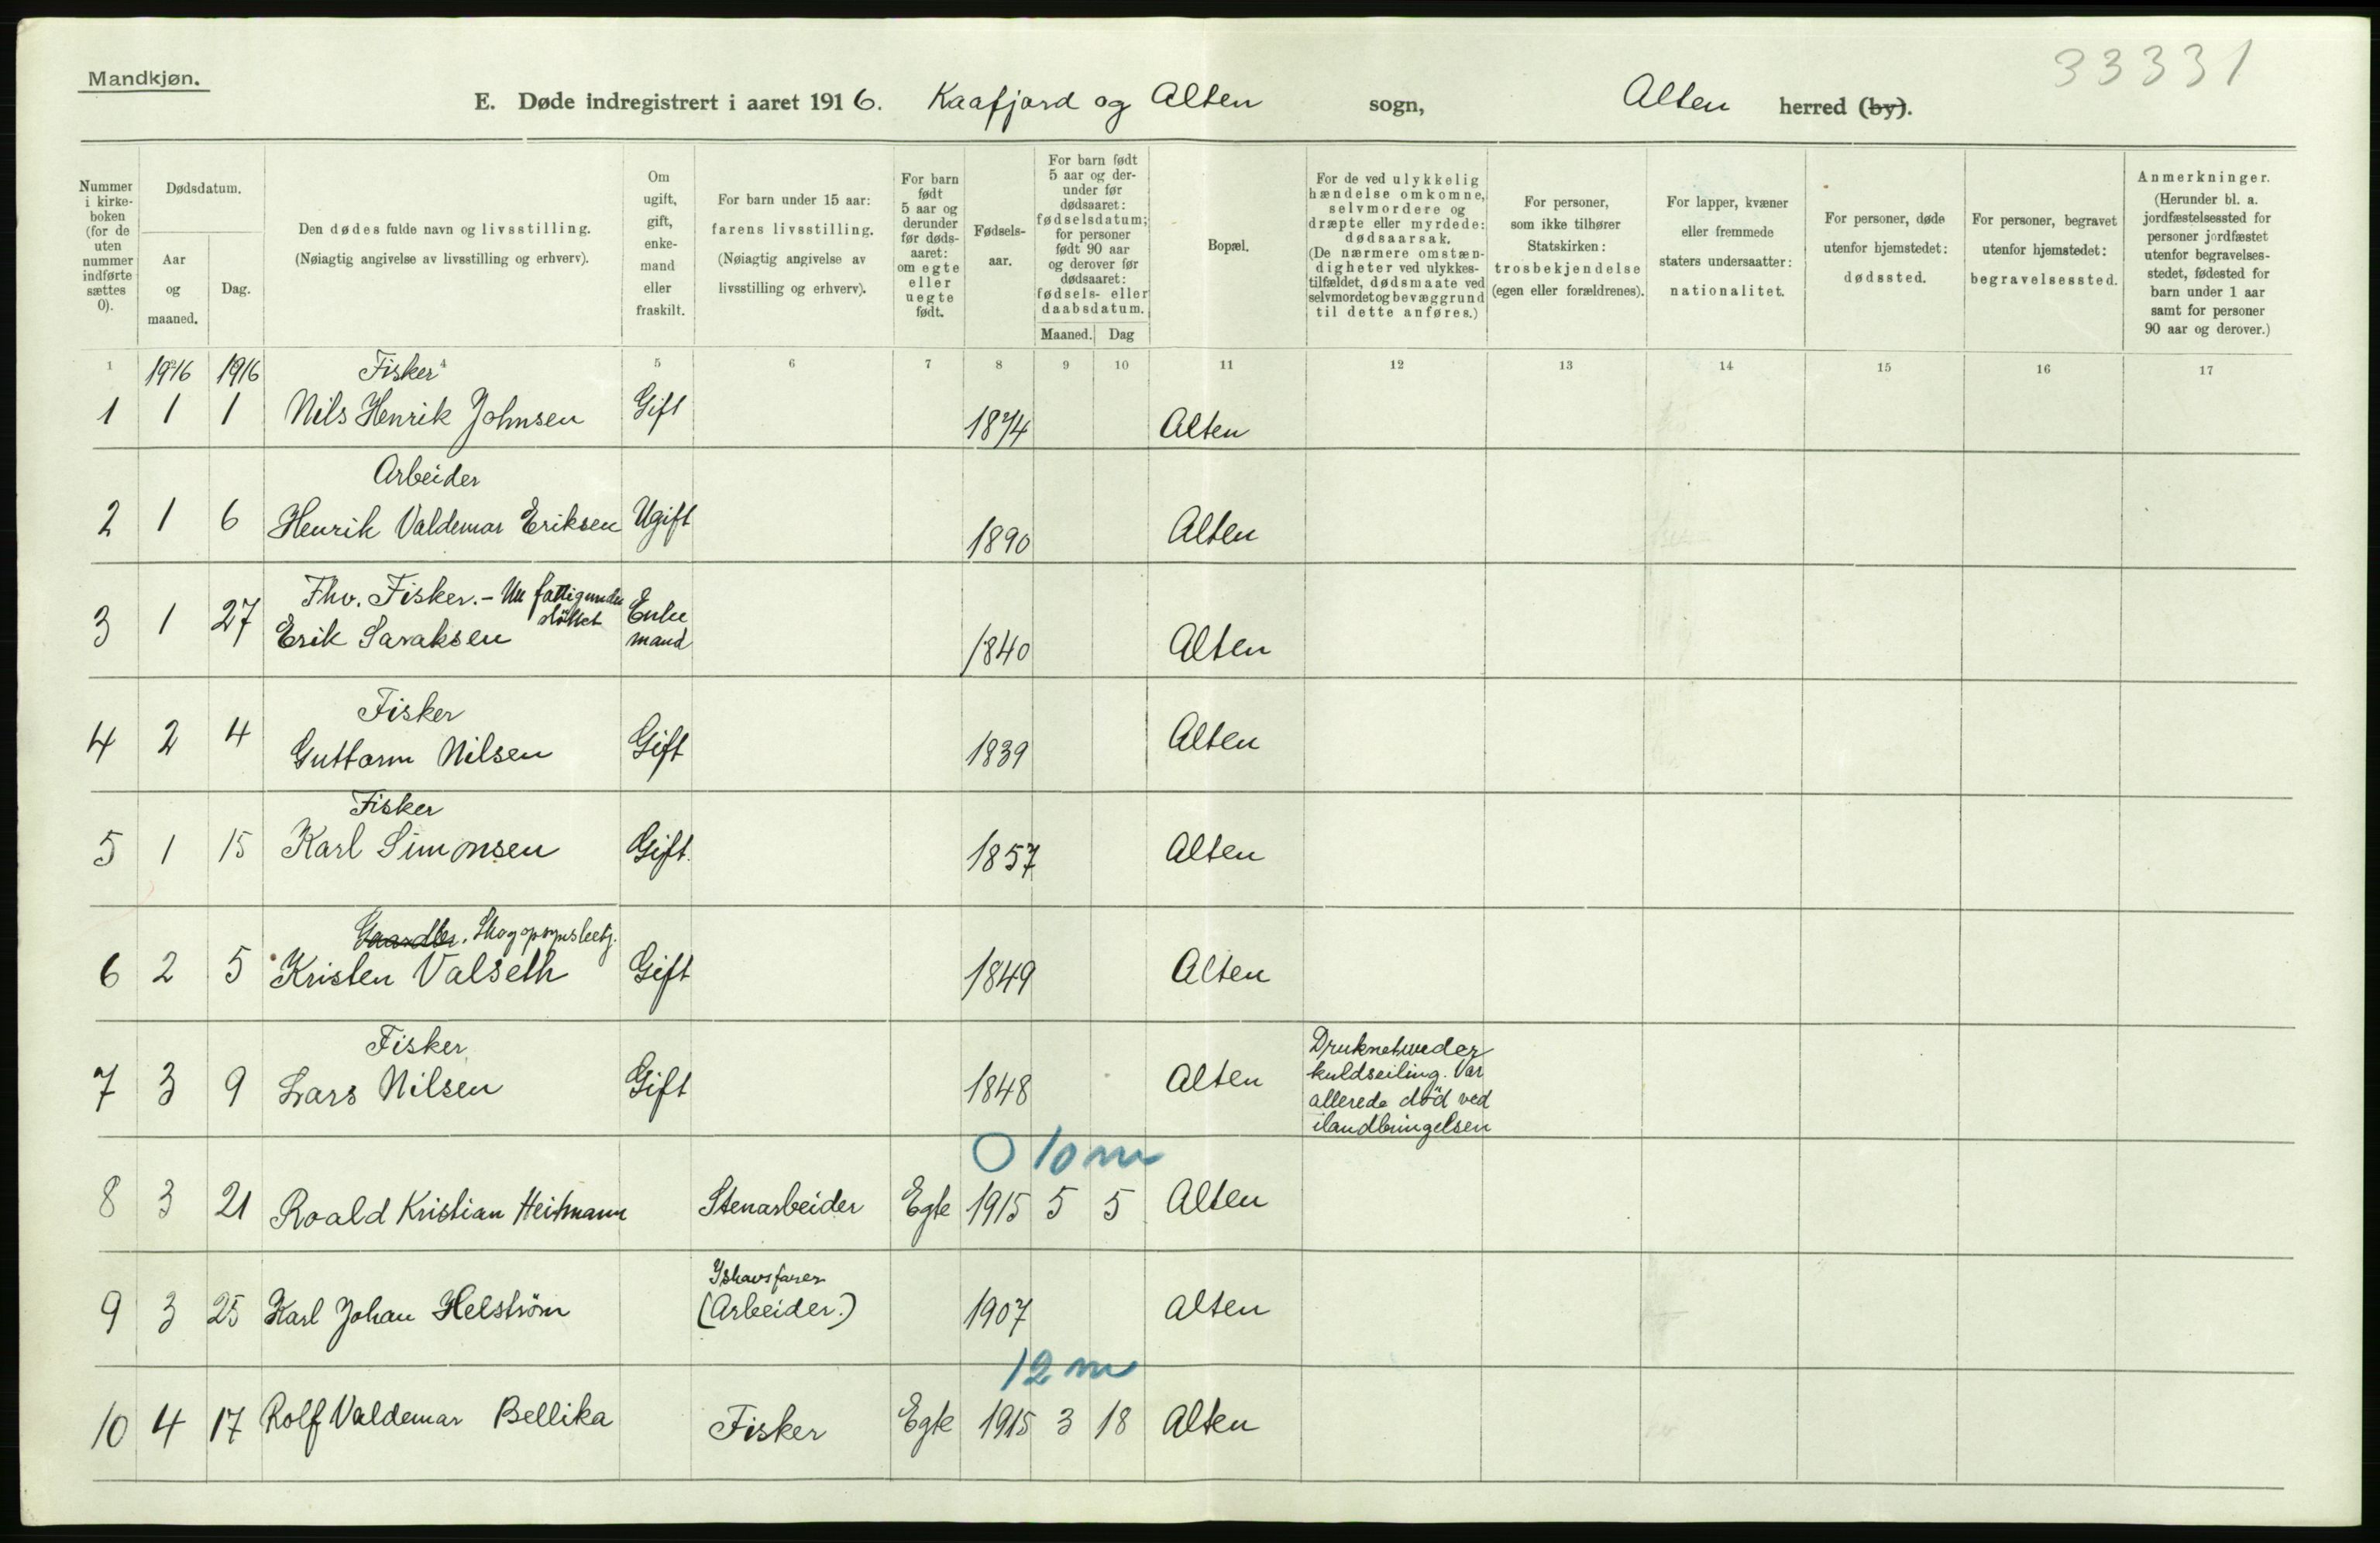 33331
Mandkjøn.
E. Døde indregistrert i aaret 1916. Kaafjord og Alten sogn, Alten herred (by).
Nummer i kirkeboken (for de uten nummer indførte sættes 0).
Dødsdatum.
Aar og maaned.
Dag.
Den dødes fulde navn og livsstilling.
(Nøiagtig angivelse av livsstilling og erhverv).
Om ugift, gift, enkemand eller fraskilt.
For barn under 15 aar: farens livsstilling.
(Nøiagtig angivelse av livsstilling og erhverv).
For barn født 5 aar og derunder før dødsaaret: om egte eller uegte født.
Fødselsaar.
For barn født 5 aar og derunder før dødsaaret: fødselsdatum; for personer født 90 aar og derover før dødsaaret: fødsels- eller daabsdatum.
Maaned. Dag
Bopæl.
For de ved ulykkelig hændelse omkomne, selvmordere og dræpte eller myrdede: dødsaarsak.
(De nærmere omstændigheter ved ulykkestilfældet, dødsmaate ved selvmordet og bevæggrund til dette anføres.)
For personer, som ikke tilhører Statskirken: trosbekjendelse (egen eller forældrenes).
For lapper, kvæner eller fremmede staters undersaatter: nationalitet.
For personer, døde utenfor hjemstedet: dødssted.
For personer, begravet utenfor hjemstedet: begravelsessted.
Anmerkninger.
(Herunder bl. a. jordfæstelsessted for personer jordfæstet utenfor begravelsesstedet, fødested for barn under 1 aar samt for personer 90 aar og derover.)
1 4 5 6 7 8 9 10 11 12 13 14 15 16 17
1916 1916 Fisker
1 1 1 Nils Henrik Johnsen Gift 1874 Alten
Arbeider
2 1 6 Henrik Valdemar Eriksen Ugift 1890 Alten
Fhv. Fisker. -
3 1 27 Erik Savaksen Enkemand 1840 Alten
Fisker
4 2 4 Guttorm Nilsen Gift 1839 Alten
Fisker
5 1 15 Karl Simonsen Gift. 1857 Alten
Gaardbr. Skogopsynsbetj.
6 2 5 Kristen Valseth Gift 1849 Alten
Fisker
7 3 9 Lars Nilsen Gift 1848 Alten
Druknet under
kuldseiling. Var
allerede död ved
ilandbringelsen
0 10 m
8 3 21 Roald Kristian Heitmann Stenarbeider Egte 1915 5 5 Alten
Ishavsfarer
9 3 25 Karl Johan Helström (Arbeider.) 1907 Alten
12 m
10 4 17 Rolf Valdemar Bellika Fisker Egte 1915 3 18 Alten